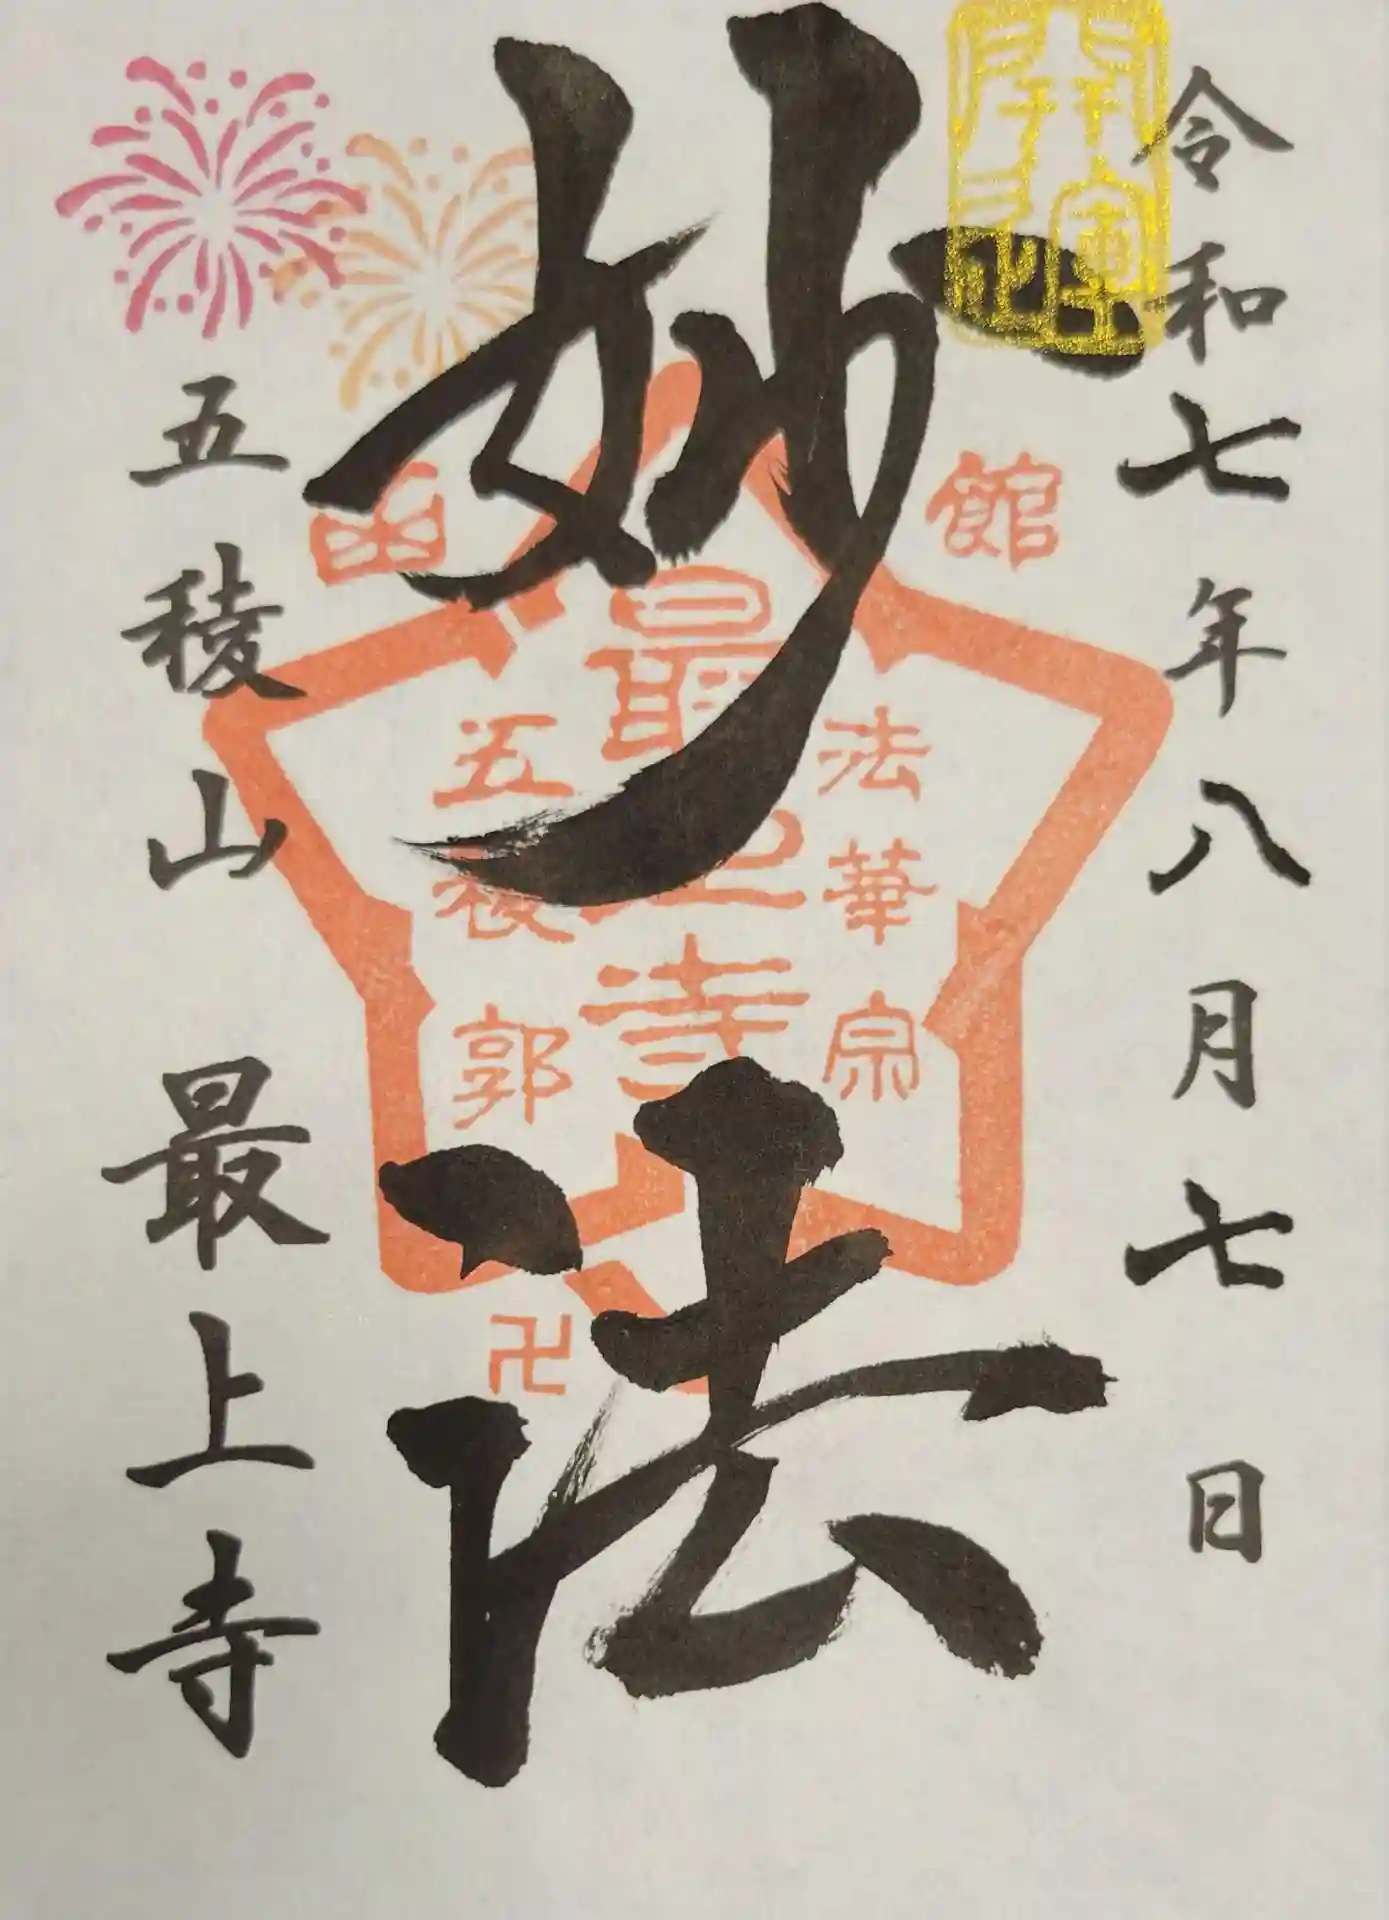 令和七年八月七日
妙法
函館
法華宗
最上寺
五稜郭
卍
五稜山 最上寺